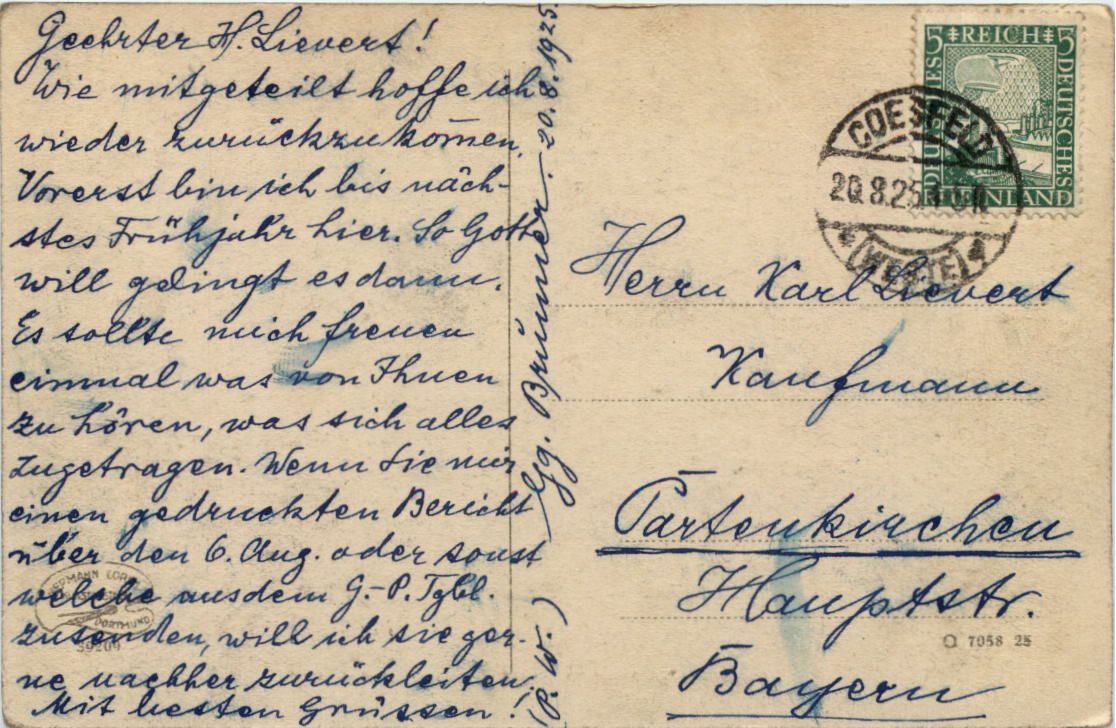 Geehrter H. Lievert!
Wie mitgeteilt hoffe ich
wieder zurückzukom̄en.
Vorerst bin ich bis näch-
stes Frühjahr hier. So Gott
will gelingt es dann.
Es sollte mich freuen
einmal was von Ihnen
zu hören, was sich alles
zugetragen. Wenn Sie mir
einen gedruckten Bericht
über den 6. Aug. oder sonst
welche aus dem G.-P. Tgbl.
zusenden, will ich sie ger-
ne nachher zurückleiten.
Mit besten Grüssen!
(P. W.) Gg. Brünner. 20.8.1925.
5 REICH 5
DEUTSCHES
DEUTSCHES
RHEINLAND
COESFELD
20.8.25
(WESTF)
Herrn Karl Lievert
Kaufmann
Partenkirchen
Hauptstr.
Bayern
7058 25
HERMANN
DORTMUND
39204